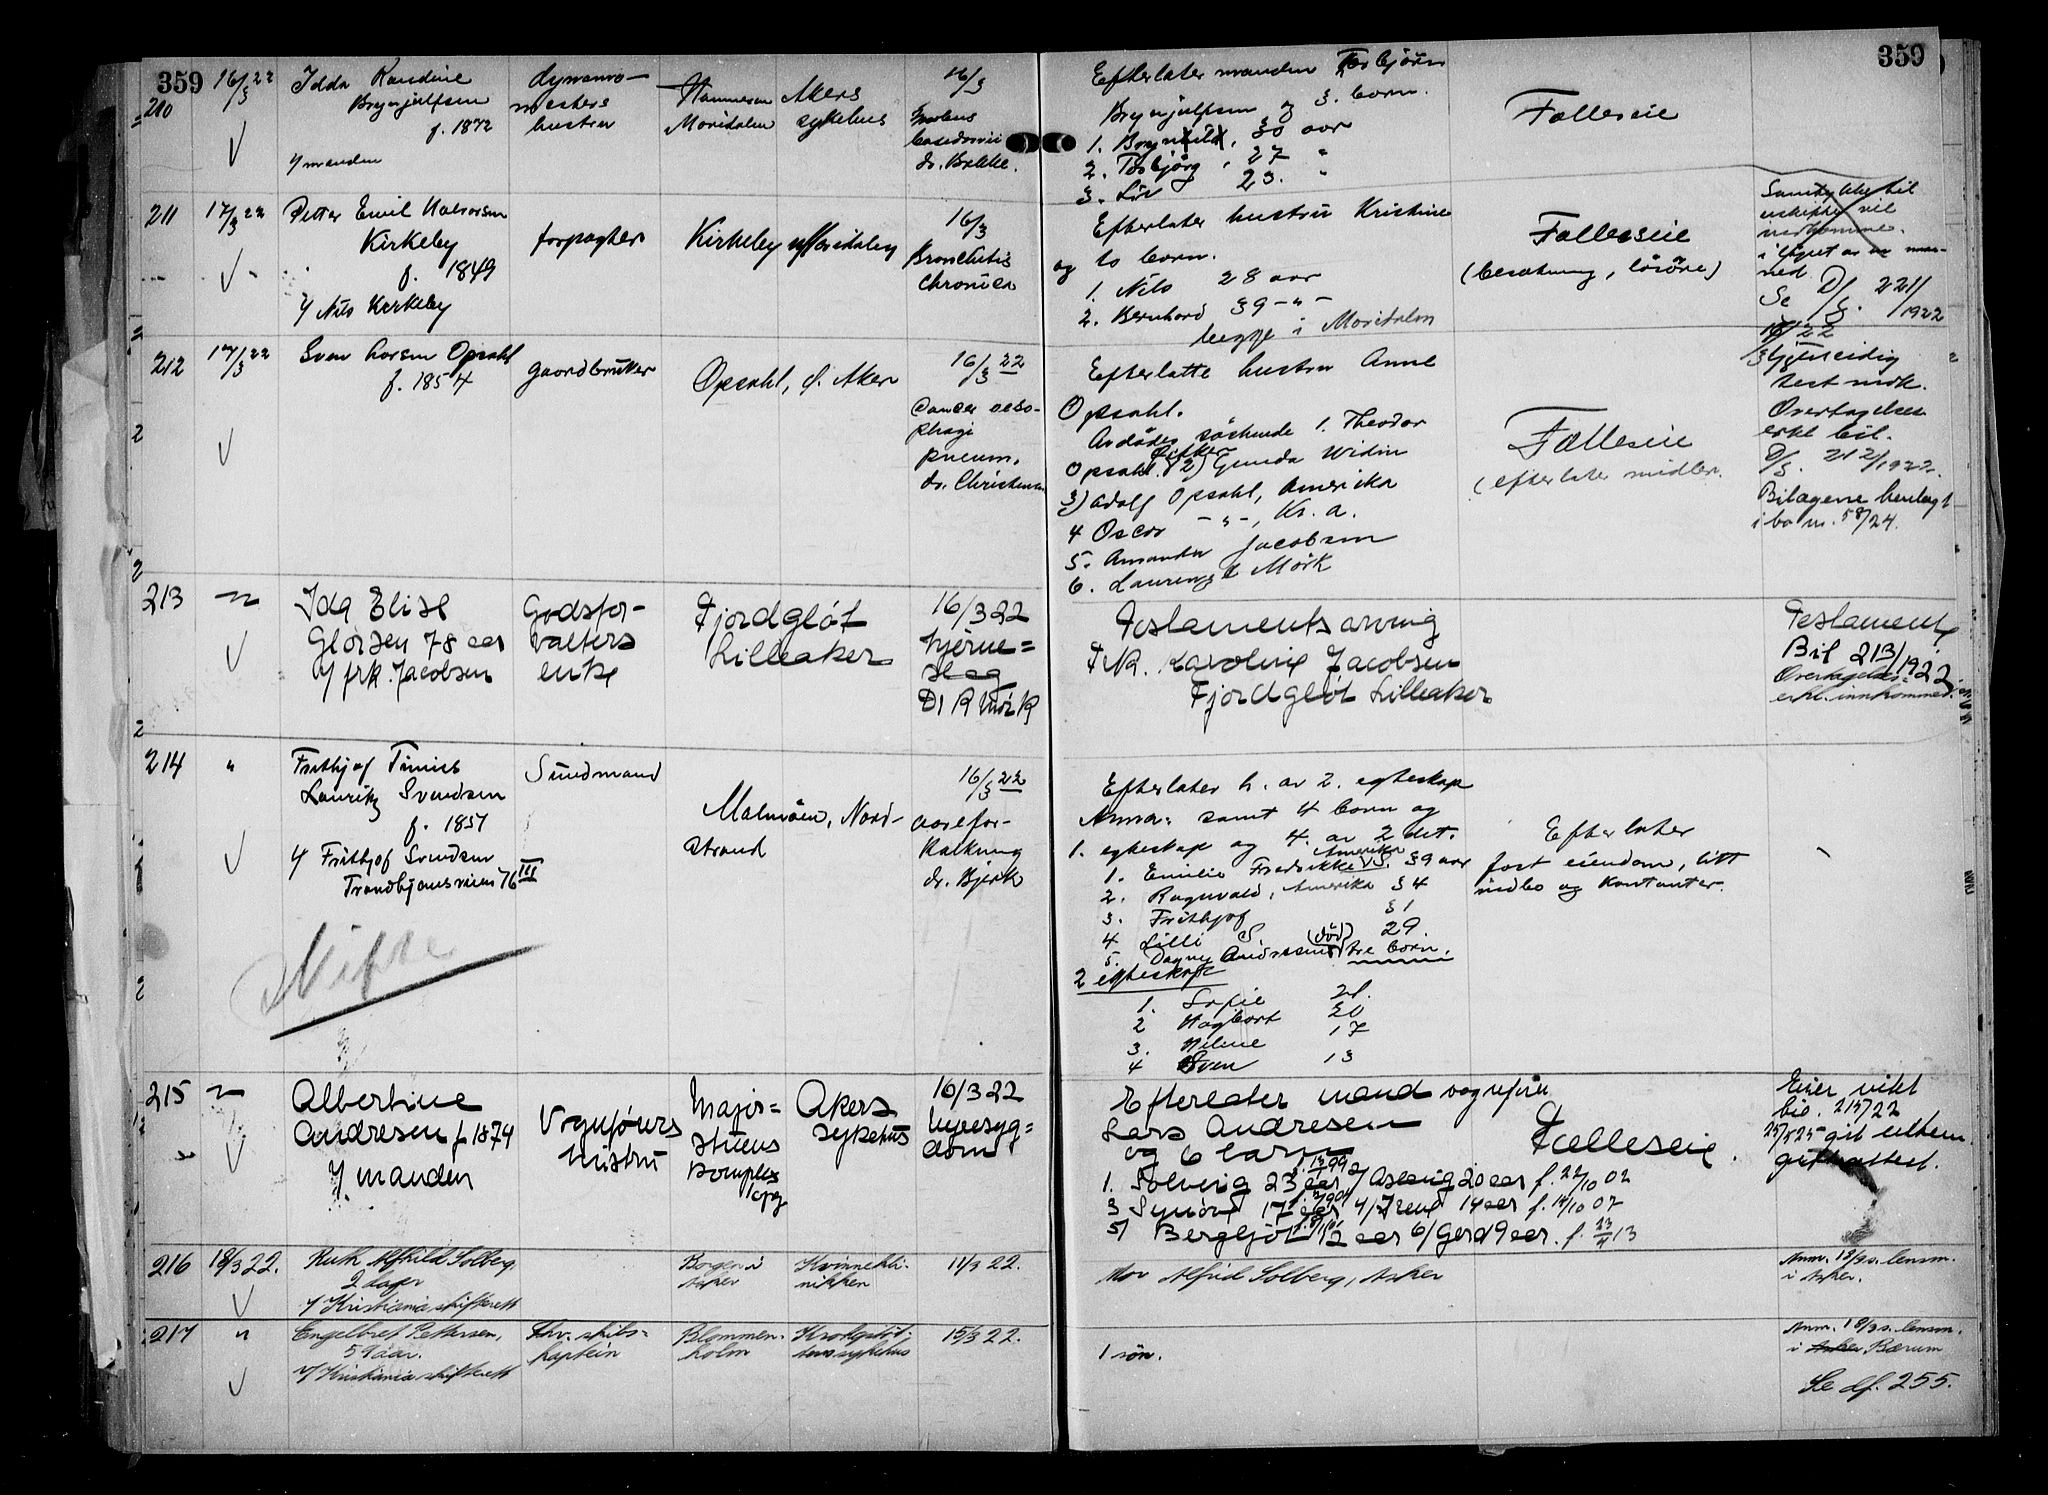 359
359
210
16/3 22
Idda Randine
Brynjulfsen
f. 1872
v/ manden
dynamo-
mesters
hustru
Hammeren
Maridalen
Akers
sykehus
16/3
Morbus
basedowii
dr. Bakke.
Efterlater manden Torbjörn
Brynjulfsen og 3. born.
1. Brynhild, 30 aar
2. Torbjørg, 27 "
3. Liv 23. "
Fælleseie
211
17/3 22
Petter Emil Halvorsen
Kirkeby
f. 1849
v/ Nils Kirkeby
forpagter
Kirkeby Maridalen
16/3
Bronchitis
chronica
Efterlater hustru Kristine
og to born.
1. Nils 28 aar
2. Bernhard 39 - " -
begge i Maridalen
Fælleseie
(besætning, lösöre)
Samtykke til
uskifte vil
vedkomme
i löpet av en maa-
ned
Se D/S. 221/1922
212
17/3 22
Sven Larsen Opsahl
f. 1854
gaardbruker
Opsahl, Ø. Aker
16/3 22
Cancer oeso-
phagi
pneum.
dr. Christensen
Efterlatte hustru Anne
Opsahl.
Avdödes söskende 1. Theodor
Opsahl. 2) Gunda Widin
3) Adolf Opsahl, Amerika
4 Oscar - " -, Kr. a.
5. Amanda Jacobsen
6. Laurenze Mörk
Fælleseie
(efterlater midler.
Gjensidig
test. mdk.
Overtagelses
erkl. bil.
D/S. 212/1922.
Bilagene henlagt
i bo nr. 58/24.
213
Ida Elise
Glørsen 78 aar
v/ frk. Jacobsen
Godsfor-
valters
enke
Fjordgløt
Lilleaker
16/3 22
hjerne=
slag
Dr R Mörk
Testamentsarving
Frk. Karoline Jacobsen
Fjordgløt Lilleaker
Testament
Bil 213/1922
Overtagelses=
erkl. innkommet.
214
"
Frithjof Tinius
Lauritz Svendsen
f. 1857
v/ Frithjof Svendsen
Trondhjemsveien 76 III
Sundmand
Malmöen, Nord-
strand
16/3 22
aarefor-
kalkning
dr. Bjerk
Efterlater h. av 2. egteskap
Anna: samt 4 born og
1. egteskap og 4. av 2 det.
1. Emilie Fredrikke S. Amerika 39 aar
2. Ragnvald, Amerika 34
3. Frithjof 31
4 Lilli S. 29
5. Dagny Andresen (död) tre born.
2 egteskap
1. Sofie 21.
2 Hagbart 20
3. Helene 17
4 Sven 13
Efterlater
fast eiendom, litt
indbo og kontanter.
Skifte
215
Albertine
Andresen f 1874
v/ manden
Vognförers
hustru
Major=
stuens
Kompleks
Akers
sykehus
16/3 22
Nyresyg=
dom
Efterlater mand vognförer
Lars Andresen
og 6 barn
1. Solveig 23 aar 2/ Aslaug 20 aar f. 22/10 02
3 Synöve 17 aar 4/ Irene 14 aar f. 14/10 07
5/ Bergljot 12 aar 6/ Gerd 9 aar. f. 23/4 13
Fælleseie.
Eier vikt
bio. 215/22
25/5 25 git uthem.
giftattest.
216
18/3 22.
Ruth Alfhild Solberg,
2 dager
v/ Kristiania skifterett
Bogen i
Asker
Kvinnekli-
nikken
11/3 22.
Mor Alfrid Solberg, Asker
Anm. 18/3 s. lensm.
i Asker.
217
"
Engelbret Pettersen,
59 aar.
v/ Kristiania skifterett
fhv. skibs-
kaptein
Blommen-
holm
Krohgstöt-
tens sykehus
15/3 22.
1 sön.
Anm. 18/3 s. lensm.
i Asker Bærum
Se df. 255.